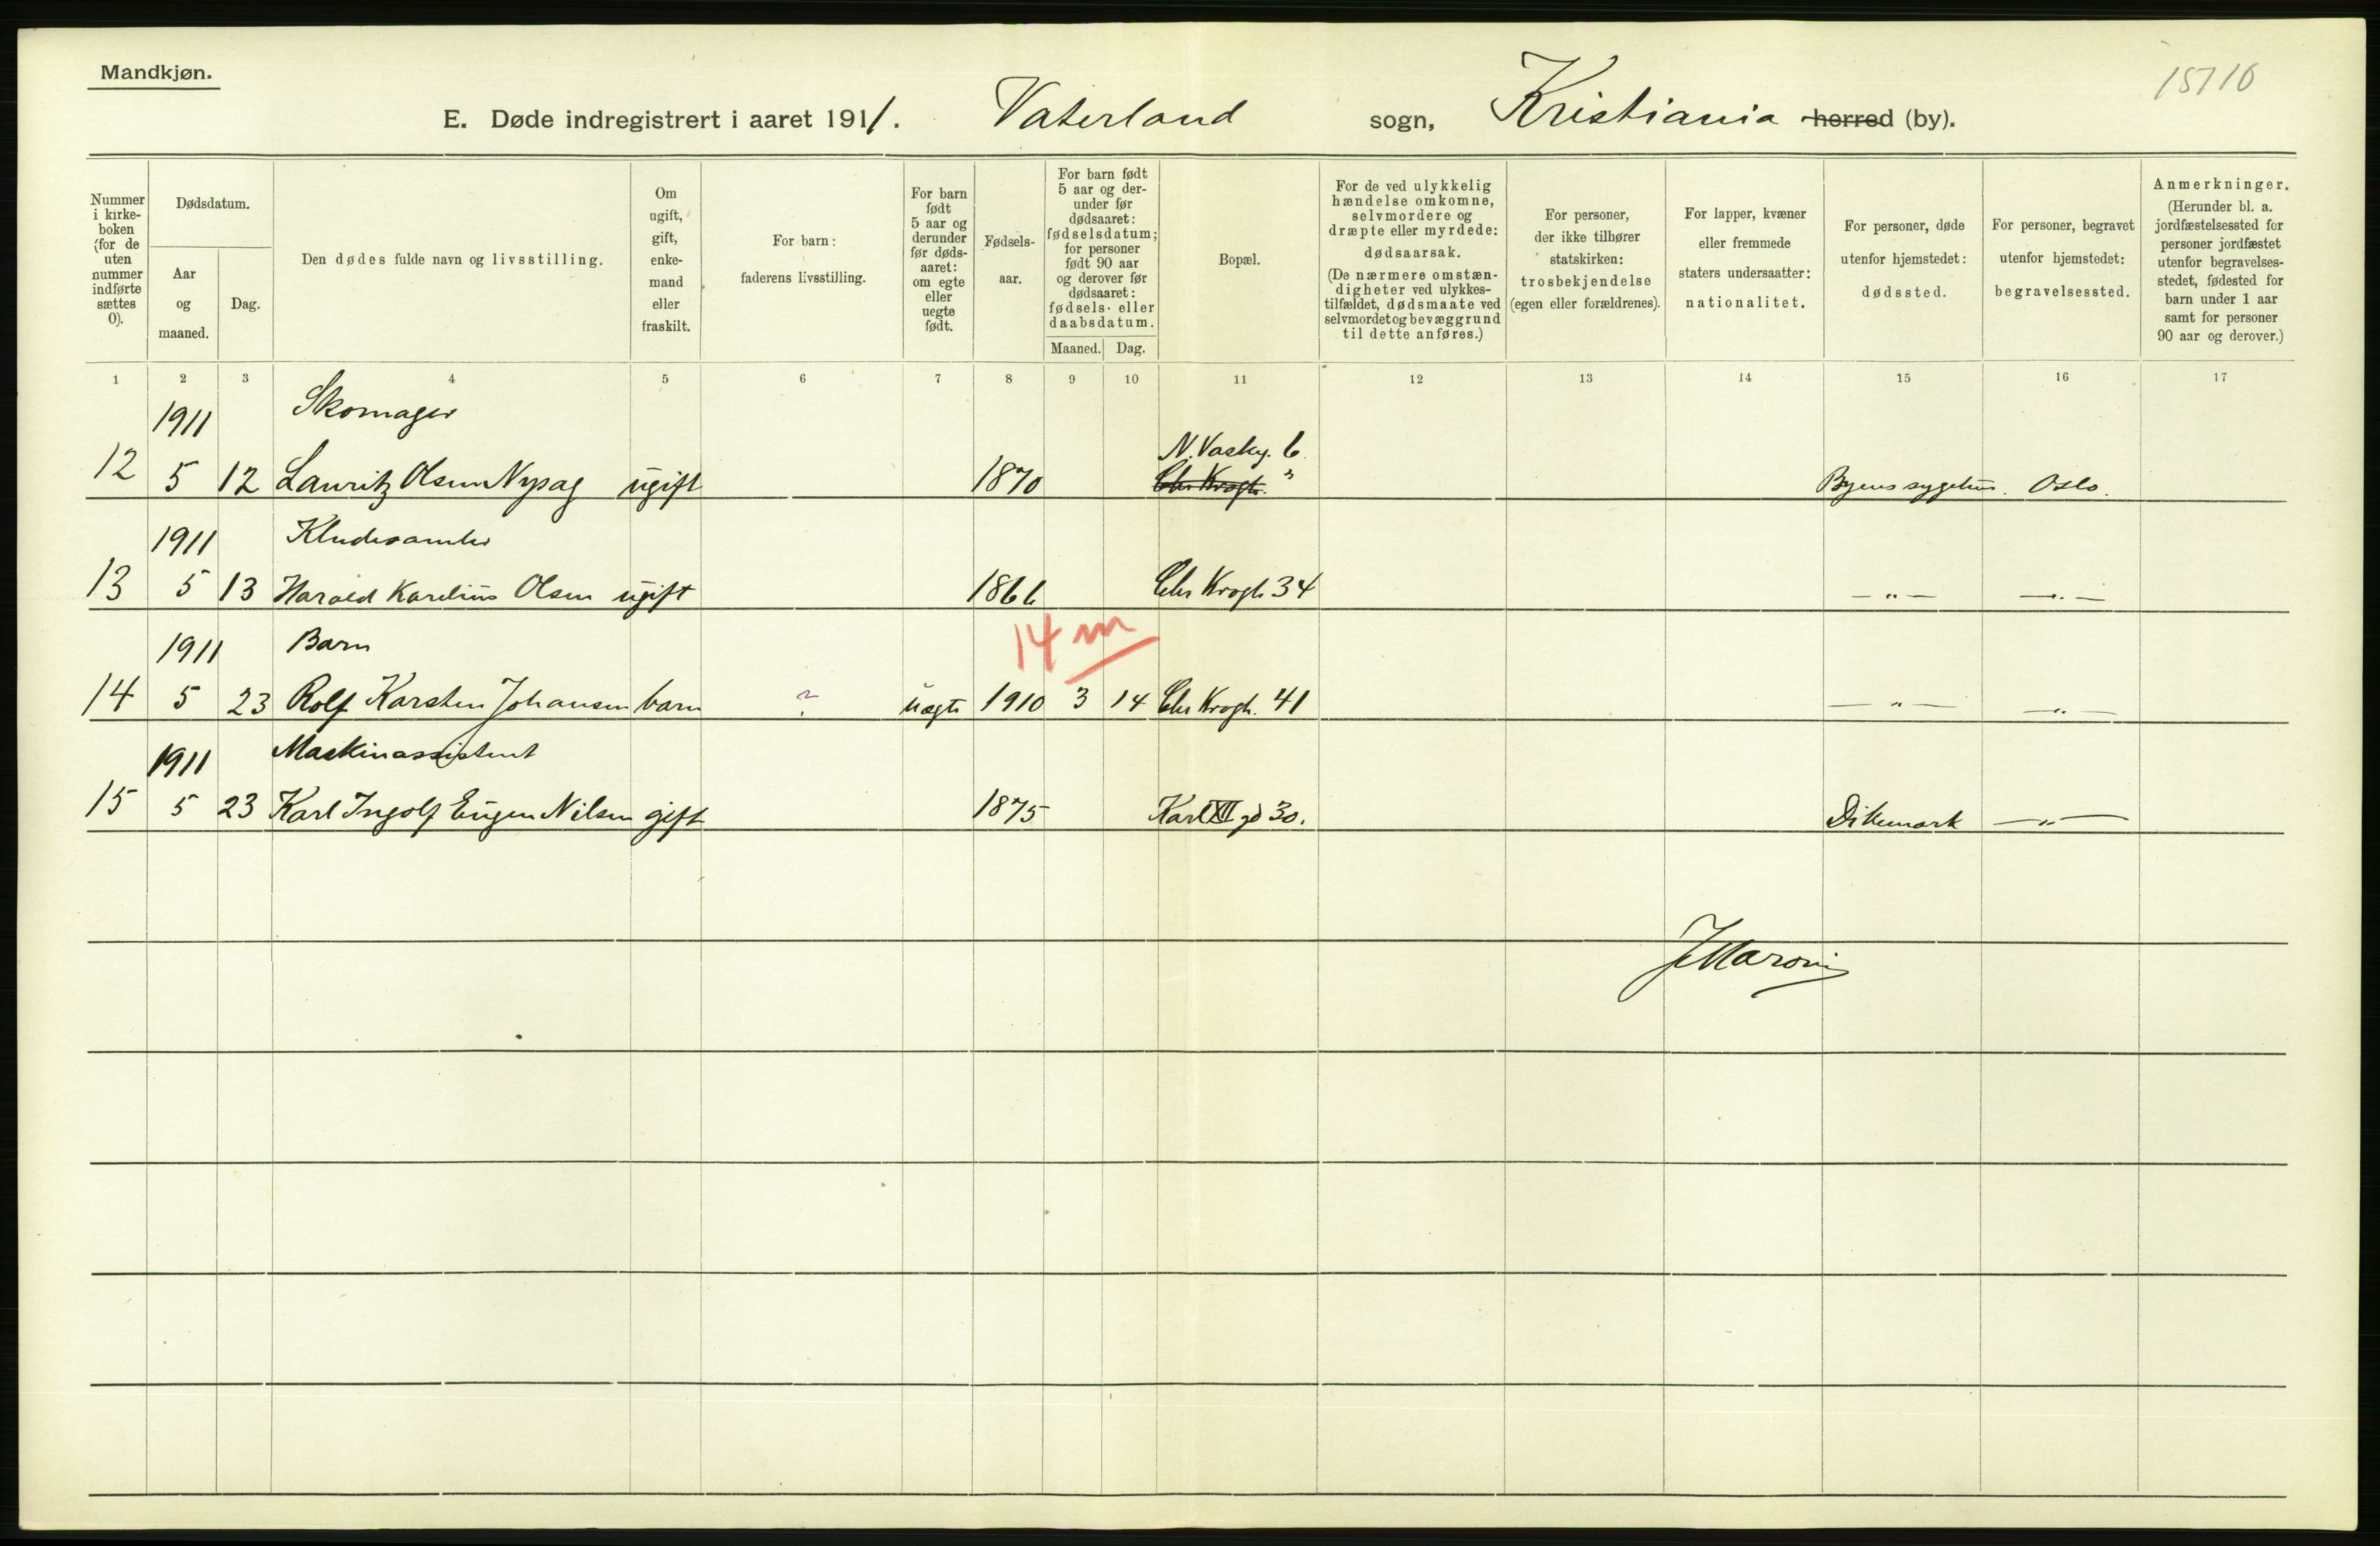 Mandkjøn.
15710
E. Døde indregistrert i aaret 1911. Vaterland sogn, Kristiania herred (by).
Nummer i kirke- boken (for de uten nummer indførte sættes 0).
Dødsdatum.
Aar og maaned.
Dag.
Den dødes fulde navn og livsstilling.
Om ugift, gift, enke- mand eller fraskilt.
For barn: faderens livsstilling.
For barn født 5 aar og derunder før døds- aaret: om egte eller uegte født.
Fødsels- aar.
For barn født 5 aar og der- under før dødsaaret: fødselsdatum; for personer født 90 aar og derover før dødsaaret: fødsels- eller daabsdatum.
Maaned. Dag.
Bopæl.
For de ved ulykkelig hændelse omkomne, selvmordere og dræpte eller myrdede: dødsaarsak. (De nærmere omstæn- digheter ved ulykkes- tilfældet, dødsmaate ved selvmordet og bevæggrund til dette anføres.)
For personer, der ikke tilhører statskirken: trosbekjendelse (egen eller forældrenes).
For lapper, kvæner eller fremmede staters undersaatter: nationalitet.
For personer, døde utenfor hjemstedet: dødssted.
For personer, begravet utenfor hjemstedet: begravelsessted.
Anmerkninger. (Herunder bl. a. jordfæstelsessted for personer jordfæstet utenfor begravelses- stedet, fødested for barn under 1 aar samt for personer 90 aar og derover.)
1 2 3 4 5 6 7 8 9 10 11 12 13 14 15 16 17
1911 Skomager
N. Vaskg. 6
12 5 12 Lauritz Olsen Nysag ugift 1870 Chr Krogh. " Byens sygehus. Oslo.
1911 Kludesamler
13 5 13 Harald Karelius Olsen ugift 1866 Chr Krogh 34 — " — — " —
14 m
1911 Barn
14 5 23 Rolf Karsten Johansen barn ? uegte 1910 3 14 Chr Krogh. 41 — " — — " —
1911 Maskinassistent
15 5 23 Karl Ingolf Eugen Nilsen gift 1875 Karl XII gd 30. Dikemark — " —